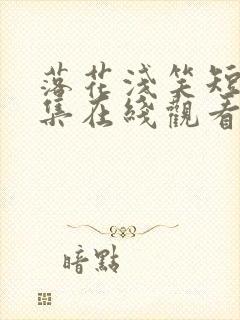 落花淺笑短
集在綫觀看
暗點